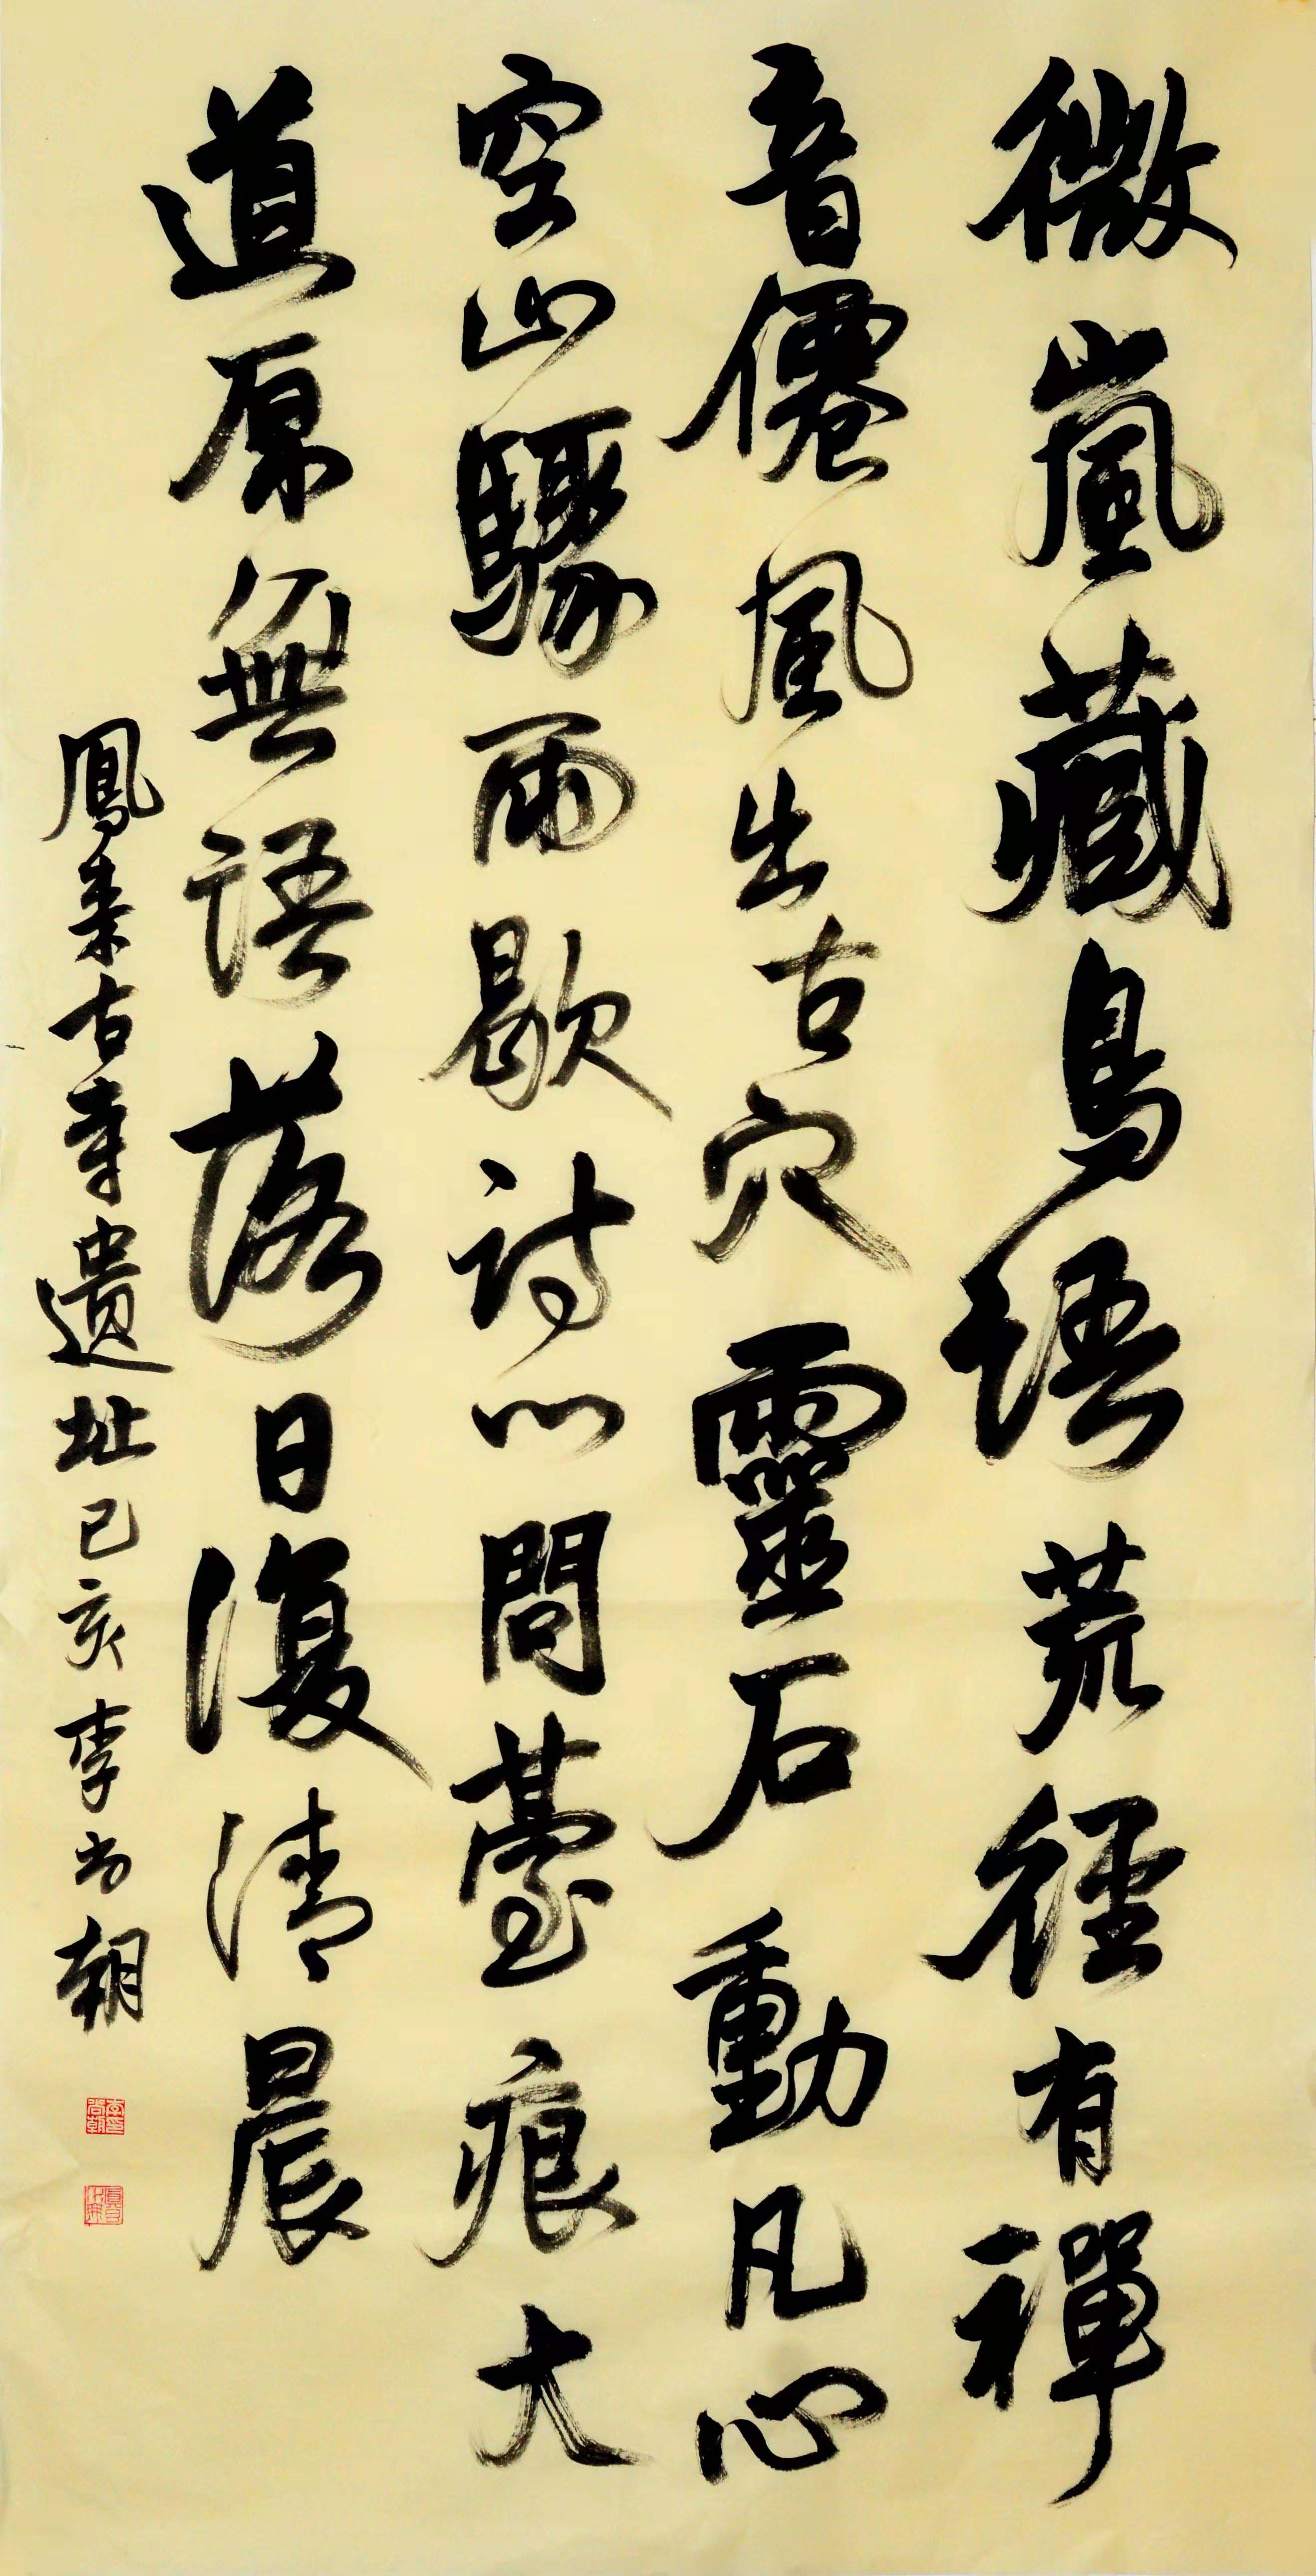 微嵐藏鳥語荒徑有禪
音僊風出古穴靈石動凡心
空山驟雨歇詩心問薹痕大
道原無語落日復清晨
鳳来古寺遗址己亥李尚朝